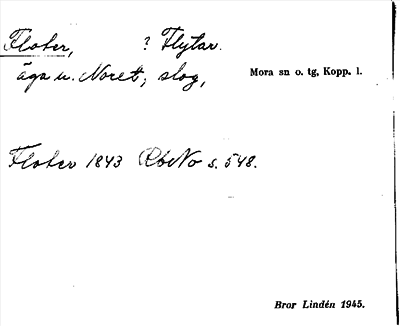 Floter, ? Flytar.
äga u. Noret; slog, Mora sn o. tg, Kopp. l.
Floter 1843 RbNo s. 548.
Bror Lindén 1945.